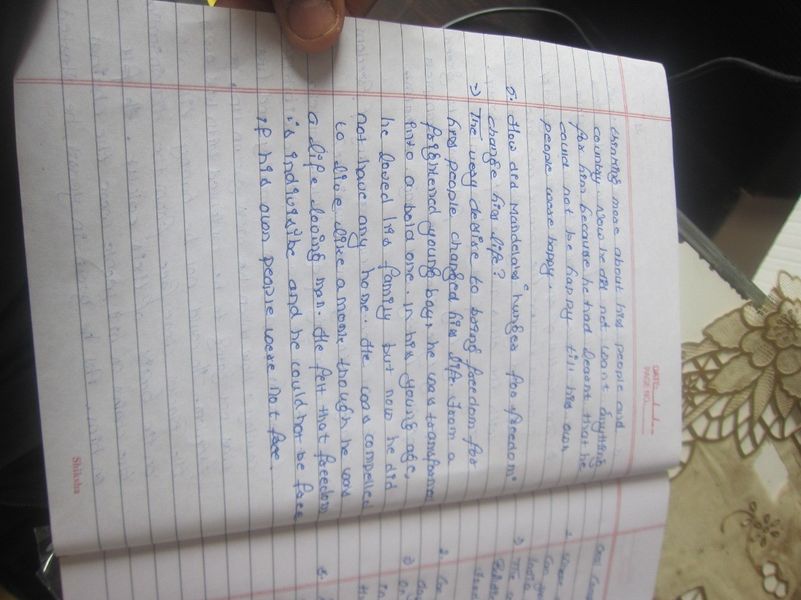 thinking more about his people and
country. Now he did not want anything
for him because he had learnt that he
could not be happy till his own
people were happy.
5. How did Mandela's "hunger for freedom"
change his life?
→) The very desire to bring freedom for
his people changed his life. From a
frightened young boy, he was transformed
into a bold one. In his young age,
he loved his family but now he did
not have any home. He was compelled
to live like a monk though he was
a life loving man. He felt that freedom
is indivisible and he could not be free
if his own people were not free.
Shiksha
DATE:
PAGE NO.:
1.
India
3) The
2.